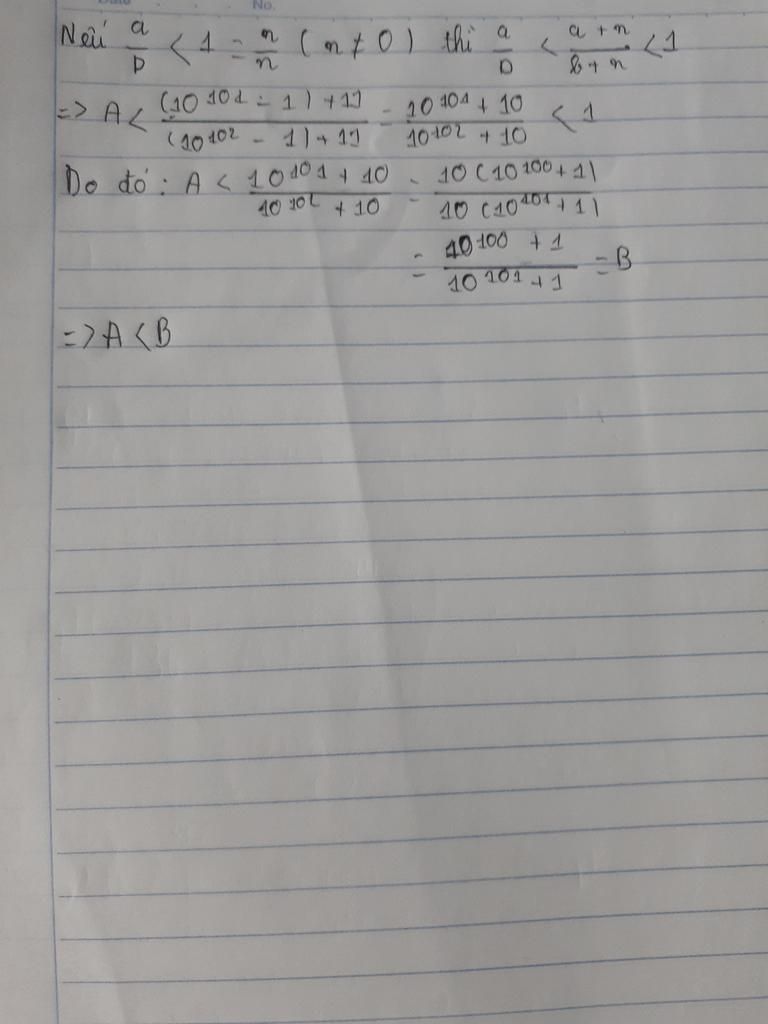 No.
Nếu a/b < 1 = n/n ( n ≠ 0 ) thì a/b < a + n/b + n < 1
=> A < (10^101 - 1) + 11/(10^102 - 1) + 11 = 10^101 + 10/10^102 + 10 < 1
Do đó : A < 10^101 + 10/10^102 + 10 = 10(10^100 + 1)/10(10^101 + 1)
= 10^100 + 1/10^101 + 1 = B
=> A < B